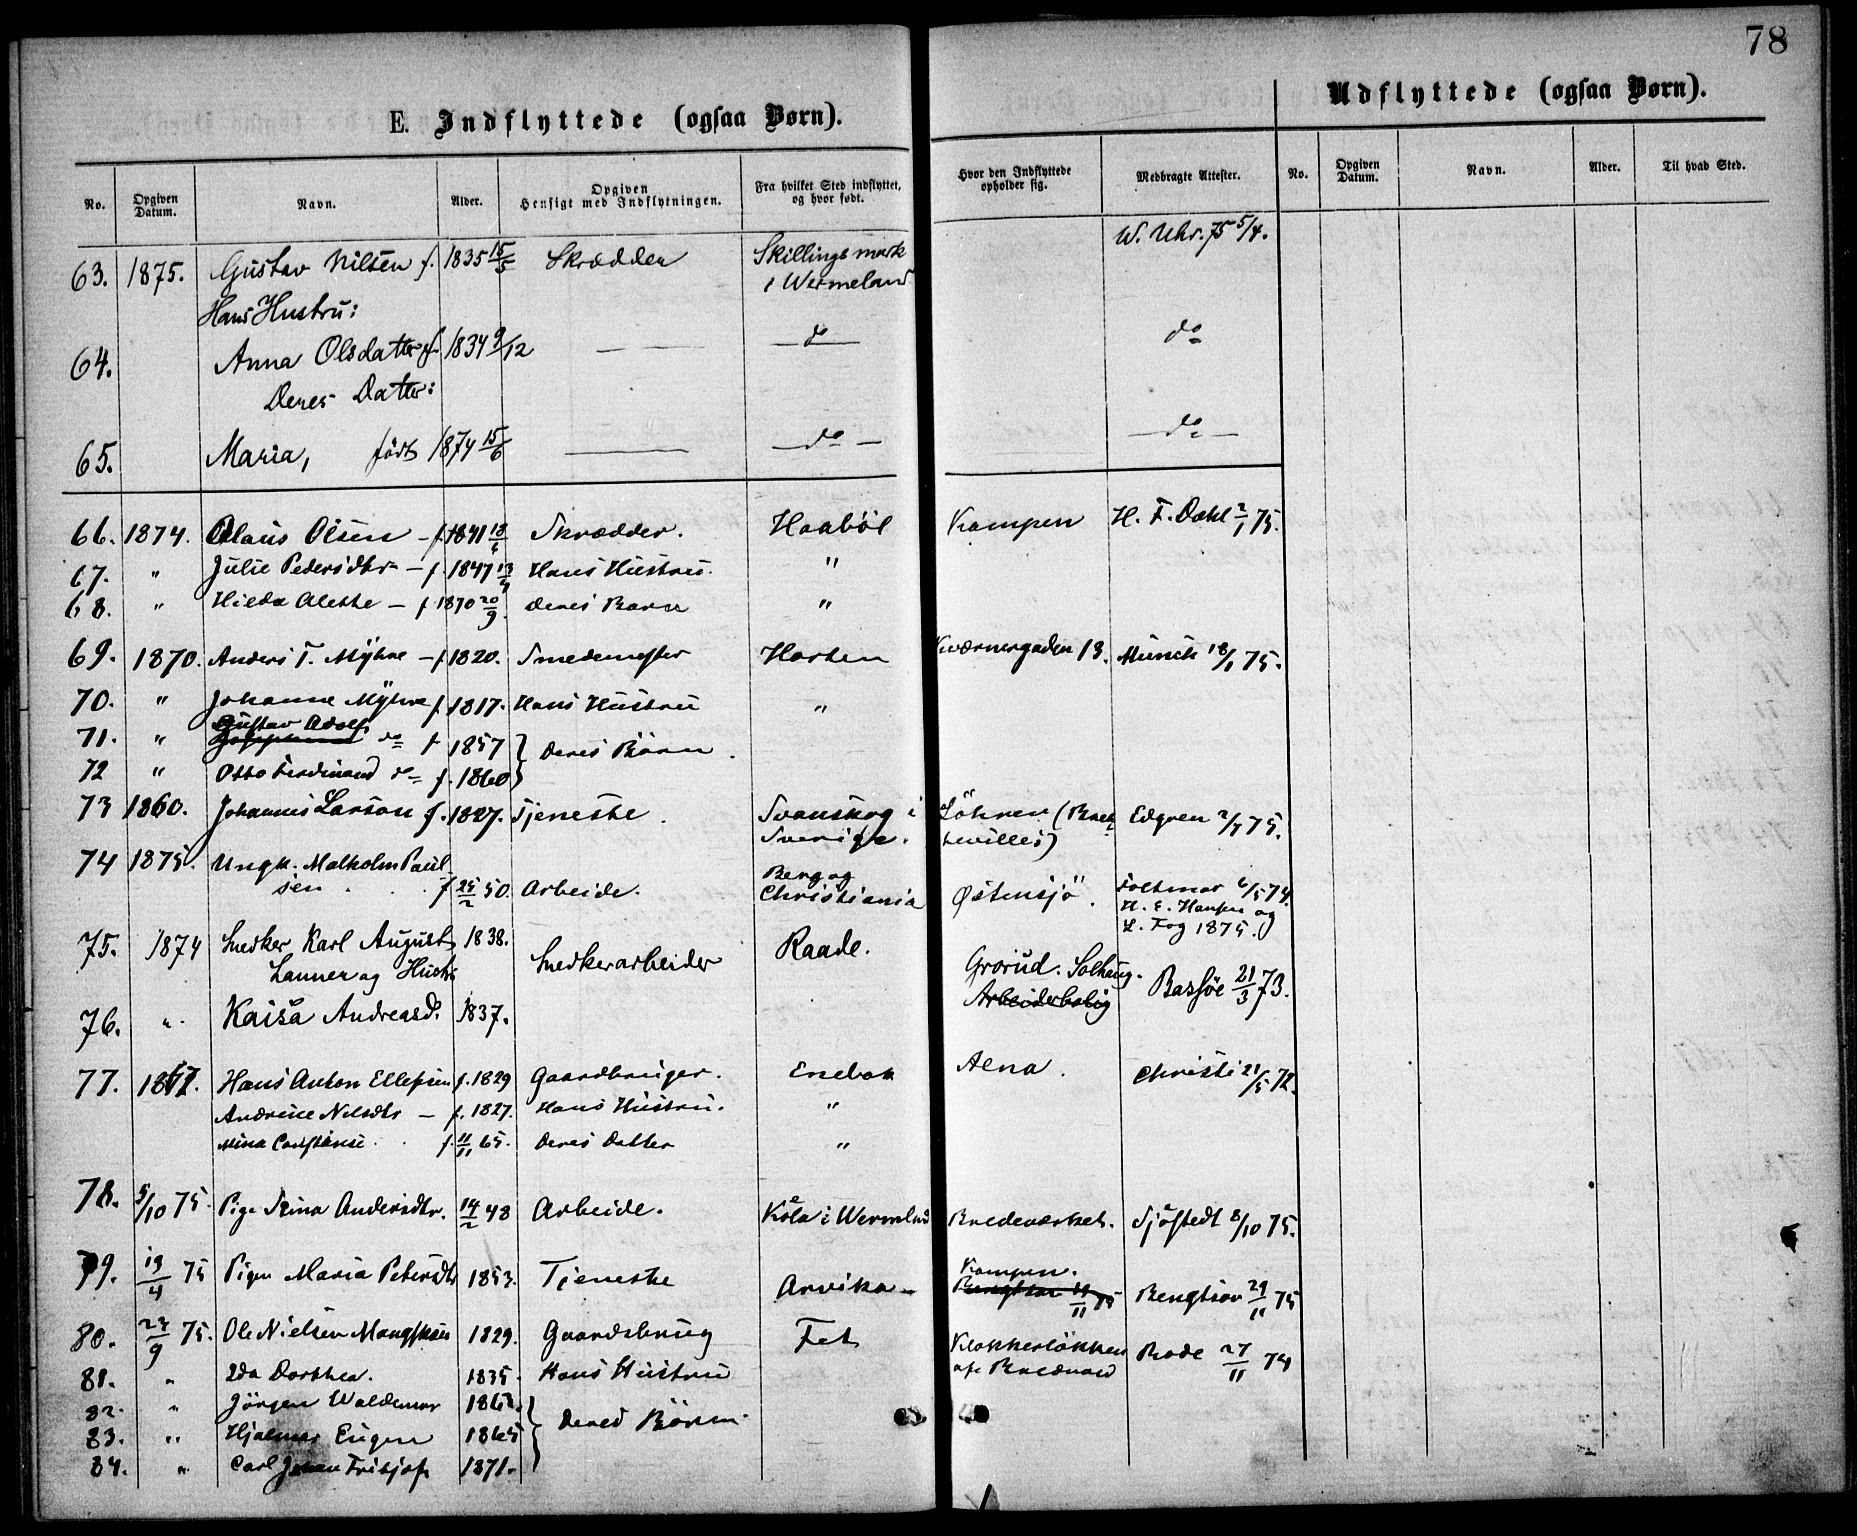 78
E. Indflyttede (ogsaa Børn).
Udflyttede (ogsaa Børn).
No. | Opgiven Datum. | Navn. | Alder. | Opgiven Hensigt med Indflytningen. | Fra hvilket Sted indflyttet, og hvor født. | Hvor den Indflyttede opholder sig. | Medbragte Attester. | No. | Opgiven Datum. | Navn. | Alder. | Til hvad Sted.
63. 1875. Gustav Nilsen f. 1835 15/5 Skrædder Skillingsmark W. Uhr. 75 5/4.
i Wermeland
Hans Hustru:
64. Anna Olsdatter f. 1834 9/12 — do — do
Deres Datter:
65. Maria, født 1874 15/6 — do — do —
66. 1874. Olaus Olsen – f. 1841 18/6 Skrædder. Haabøl Kampen H. F. Dahl 2/1 75.
67. " Julie Pedersdtr – f. 1847 13/4 Hans Hustru. "
68. " Hilda Alette – f. 1870 20/9. Deres Barn "
69. 1870. Anders T. Myhre – f. 1820. Smedemester Horten Kværnergaden 13. Munch 18/1 75.
70. " Johanne Myhre f. 1817. Hans Hustru "
Gustav Adolf
71. " do f 1857 } Deres Børn.
72 " Otto Ferdinand do f. 1860 }
73 1860. Johannes Larson f. 1827. Tjeneste. Svanskog i Löhren (Bret- Edgren 2/7 75.
Sverige. tevilles)
74 1875. Ungk. Malkolm Paul-
sen f 25/2 50. Arbeide. Berg og Christiania Østensjö. Foltmar 6/5 74.
H. E. Hansen og
L. Fog 1875.
75. 1874 Snedker Karl August 1838. Snedkerarbeider Raade. Grorud. Solhaug. Bassøe 21/3 73.
Lanner og Hustr. Arbeiderbolig
76. " Kaisa Andreasd. 1837.
77. 1867. Hans Anton Ellefsen f. 1829 Gaardbruger. Enebak Alna. Christi 21/5 72.
Andrine Nilsdtr – f. 1827. Hans Hustru. "
Mina Constanse f. 11/11 65. Deres Datter "
78. 5/10 75. Pige Stina Andersdtr. 14/2 48 Arbeide. Köla i Wermland Bredeværket. Sjöstedt 8/10 75.
79. 19/4 75 Pigen Maria Petersdtr 1853. Tjeneste Arvika – Kampen. Bengtson 29/11 75
Bengtson 29/11 75
80. 23/9 75. Ole Nielsen 1829. Gaardsbrug Fet Klokkerløkken Rode 27/11 74
81. " Ida Dorthea. 1835. Hans Hustru
82. " Jörgen Waldemar 1862. } Deres Börn.
83. " Hjalmar Eugen 1865
84. " Carl Johan Fritjof 1871.